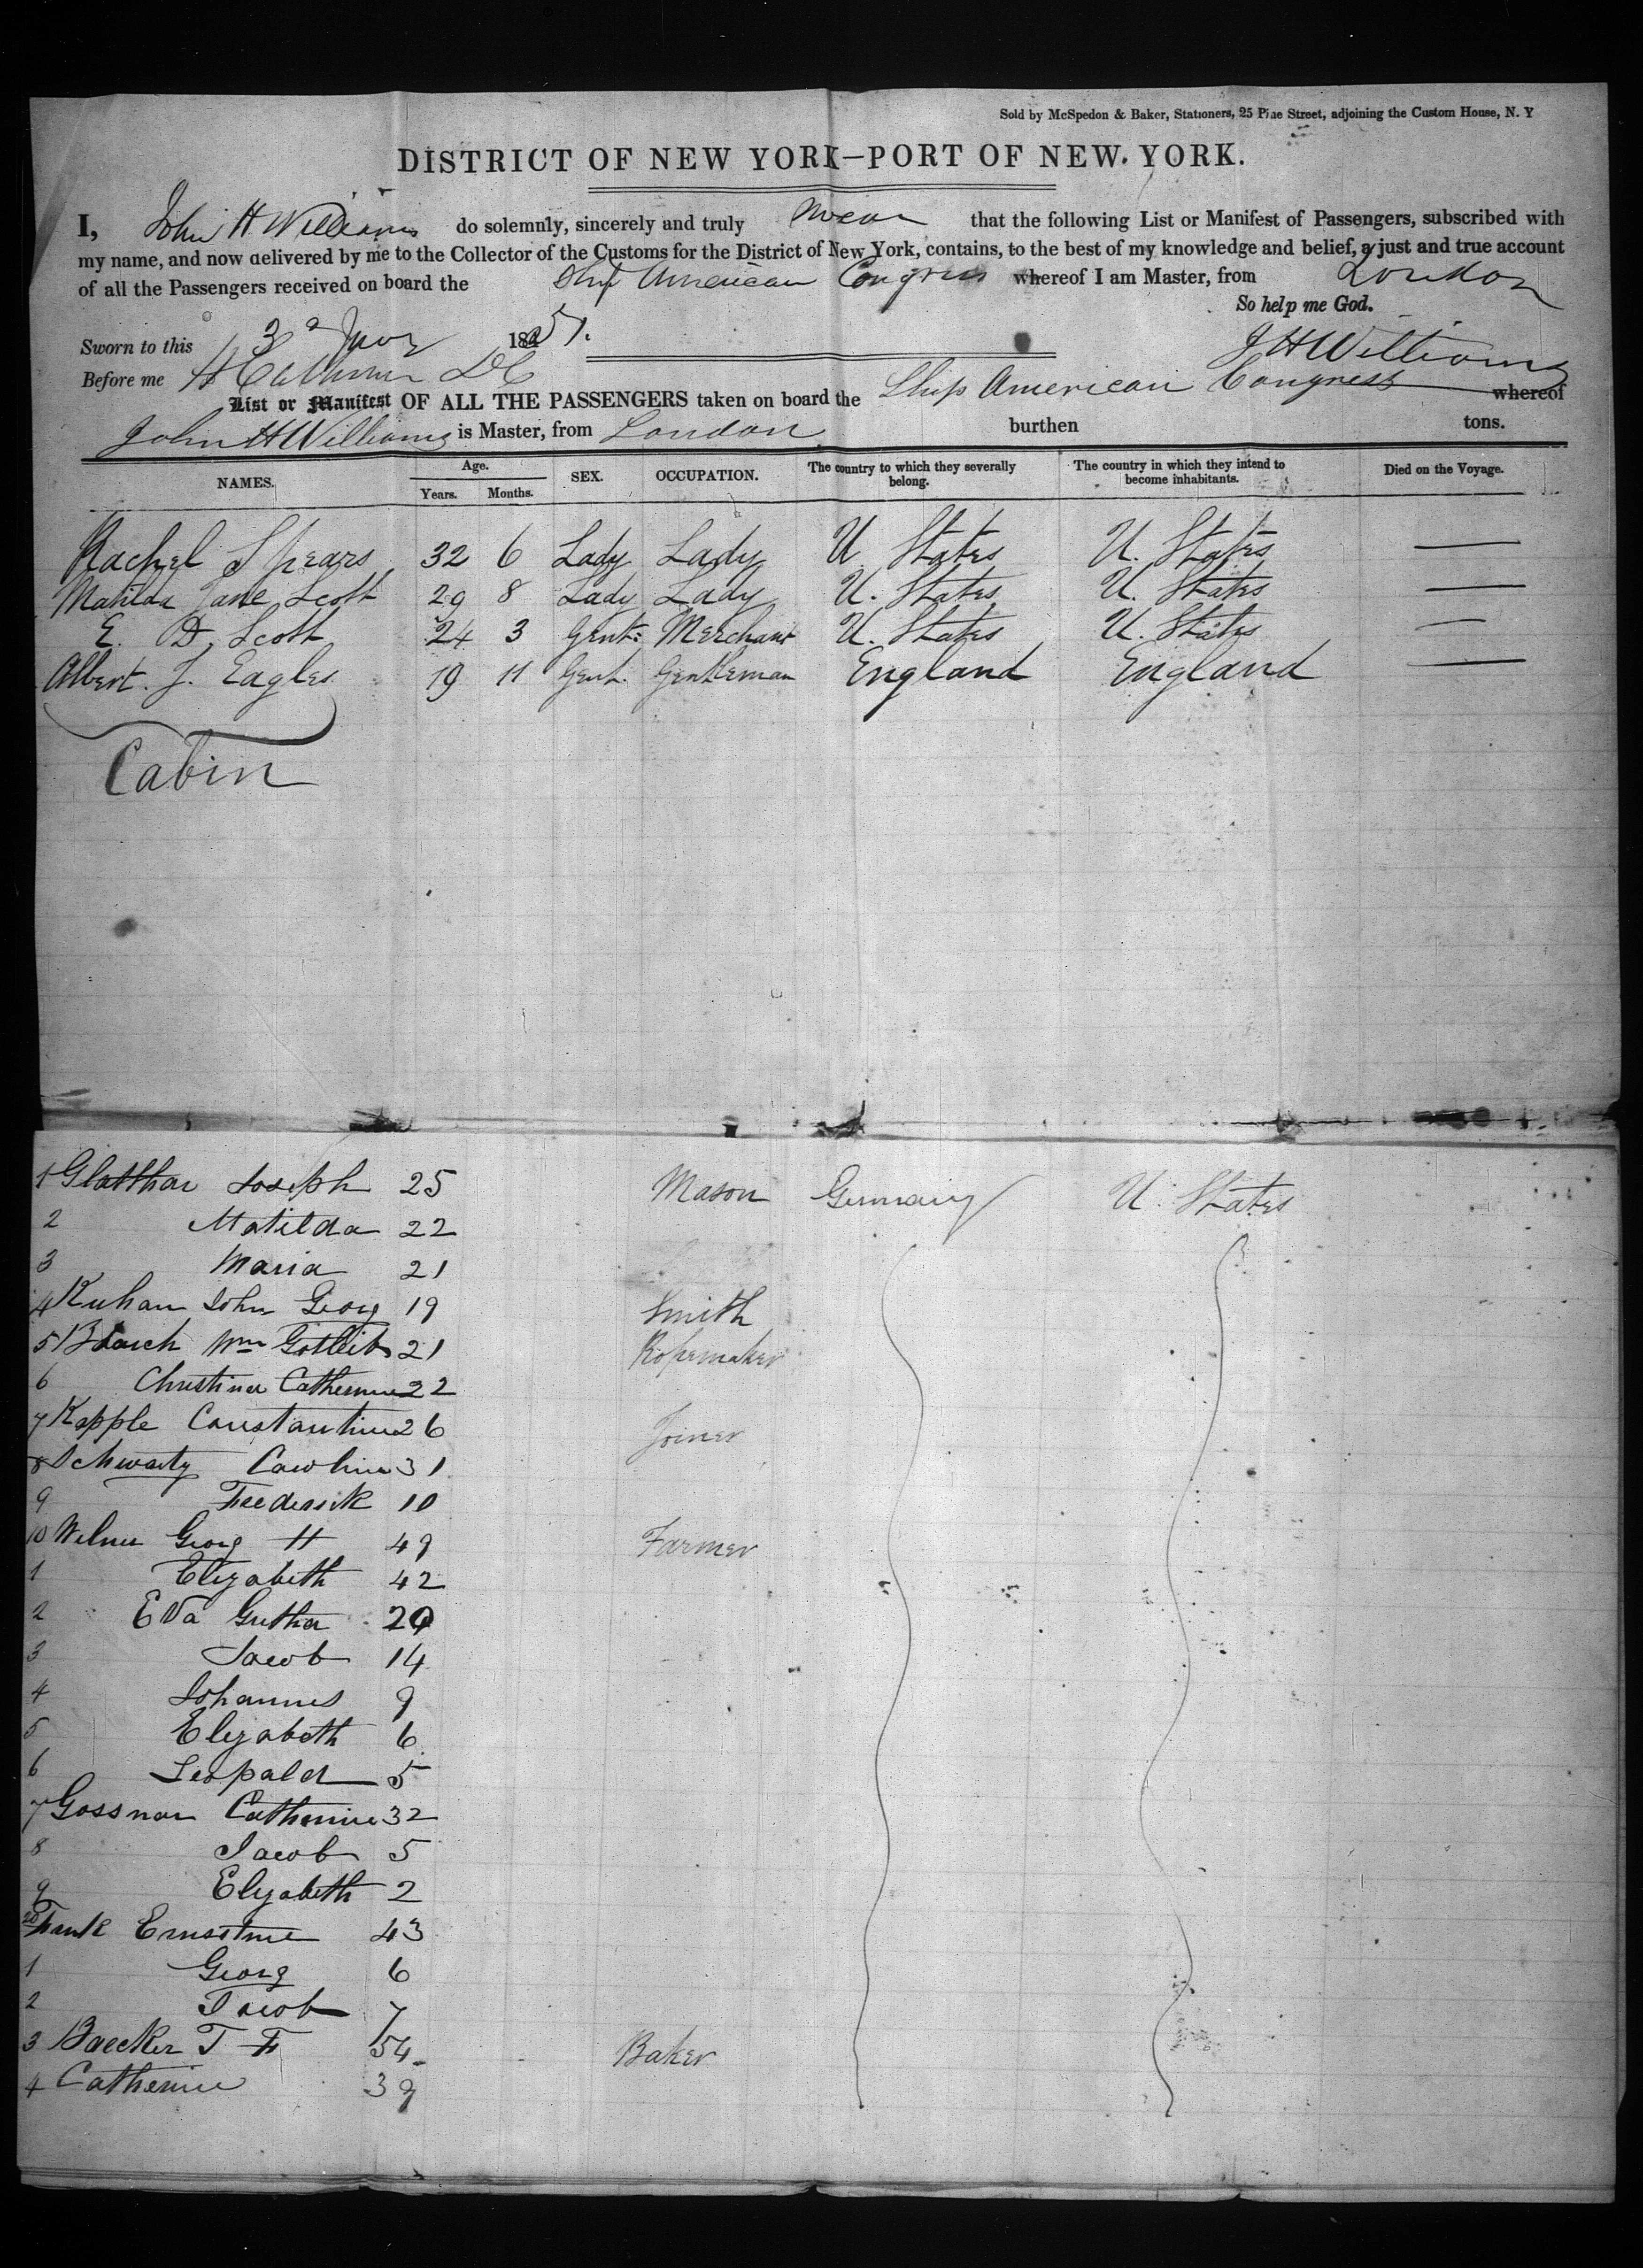 Sold by McSpedon & Baker, Stationers, 25 Pine Street, adjoining the Custom House, N. Y
DISTRICT OF NEW YORK—PORT OF NEW YORK.
I, John H Williams do solemnly, sincerely and truly swear that the following List or Manifest of Passengers, subscribed with
my name, and now delivered by me to the Collector of the Customs for the District of New York, contains, to the best of my knowledge and belief, a just and true account
of all the Passengers received on board the Ship American Congress whereof I am Master, from London
So help me God.
Sworn to this 3d 1851.
J H Williams
Before me
List or Manifest OF ALL THE PASSENGERS taken on board the Ship American Congress whereof
John H Williams is Master, from London burthen tons.
NAMES. Age. Years. Months. SEX. OCCUPATION. The country to which they severally belong. The country in which they intend to become inhabitants. Died on the Voyage.
Rachel Spears 32 6 Lady Lady U States U. States —
Matilda Jane Scott 29 8 Lady Lady U. States U. States —
E. D. Scott 24 3 Gent: Merchant U. States U. States —
Albert. J. Eagles 19 11 Gent. Gentleman England England —
Cabin
1 Glatthar Joseph 25 Mason Germany U. States
2 Matilda 22
3 Maria 21
4 Kuhan John Georg 19 Smith
5 Wm Gotleib 21 Ropemaker
6 Christina Catherine 22
7 Kapple Constantine 26 Joiner
8 Schwartz Caroline 31
9 Frederick 10
10 Welner Georg H 49 Farmer
1 Elizabeth 42
2 Eva Gutha 20
3 Jacob 14
4 Johannes 9
5 Elizabeth 6
6 Leopald 5
7 Gossnar Catherine 32
8 Jacob 5
9 Elizabeth 2
20 Frank Ernestine 43
1 Georg 6
2 Jacob 7
3 Baecker T F 54 Baker
4 Catherine 39